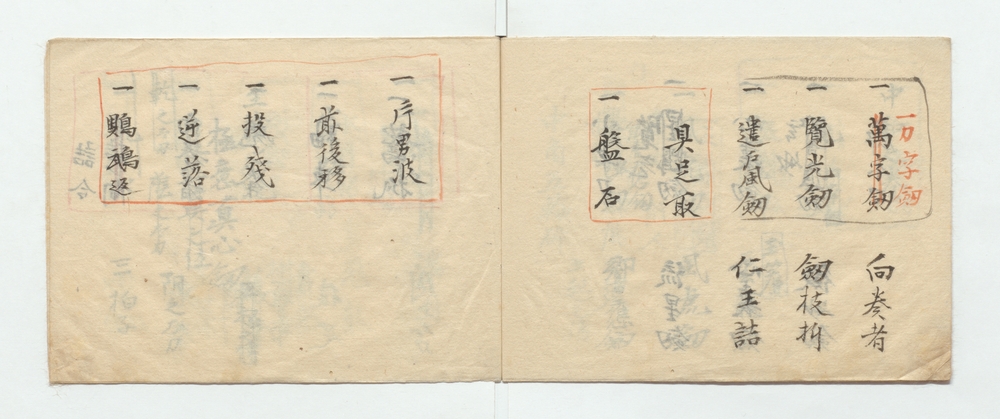 一刀字劔
一 萬字劔 向奏者
一 覽光劔 劔枝折
一 遣戸風劔 仁王詰
一 具足取
一 盤石
一 片男波
一 前後移
一 投殘
一 逆落
一 鸚鵡返